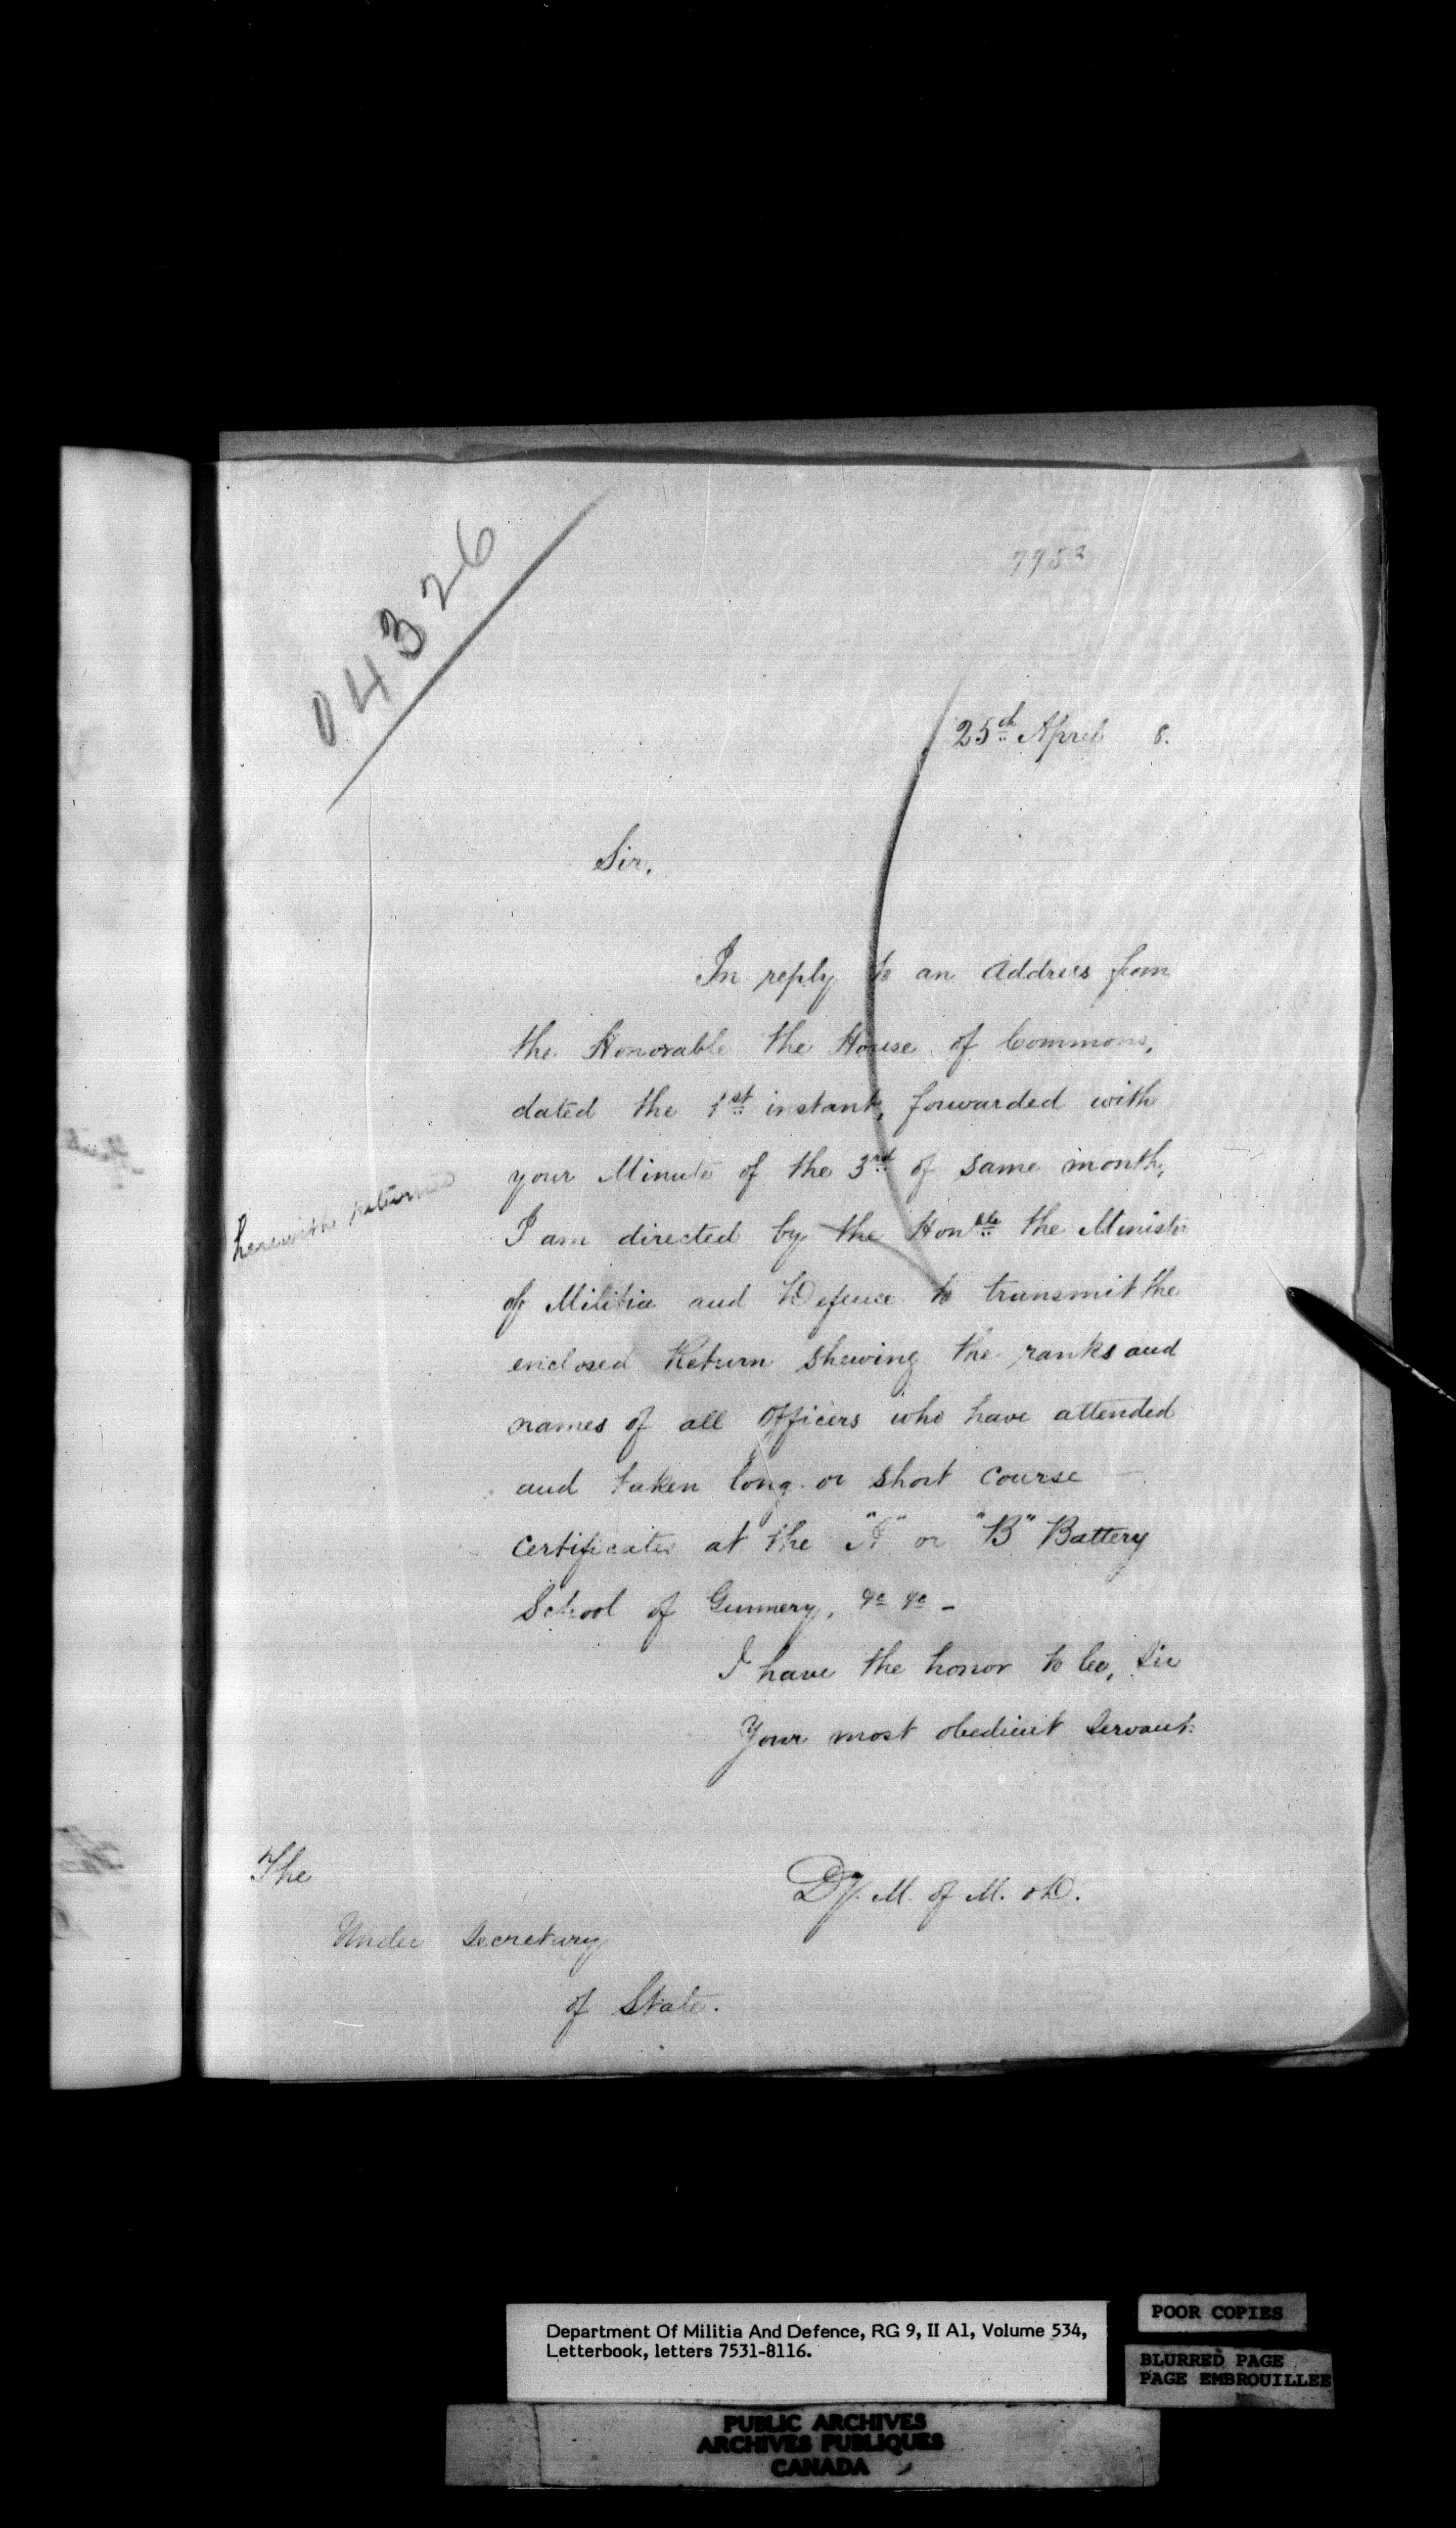 04326
7753
25th April 8.
Sir,
In reply to an Address from
the Honorable the House of Commons,
dated the 1st instant, forwarded with
your Minute of the 3rd of same month,
herewith returned
I am directed by the Honble the Minister
of Militia and Defence to transmit the
enclosed Return shewing the ranks and
names of all Officers who have attended
and taken long or short course
certificates at the "A" or "B" Battery
School of Gunnery, &c &c -
I have the honor to be, Sir
Your most obedient Servant.
Dy. M. of M. & D.
The
Under Secretary
of State.
Department Of Militia And Defence, RG 9, II A1, Volume 534,
Letterbook, letters 7531-8116.
POOR COPIES
BLURRED PAGE
PAGE EMBROUILLEE
PUBLIC ARCHIVES
ARCHIVES PUBLIQUES
CANADA